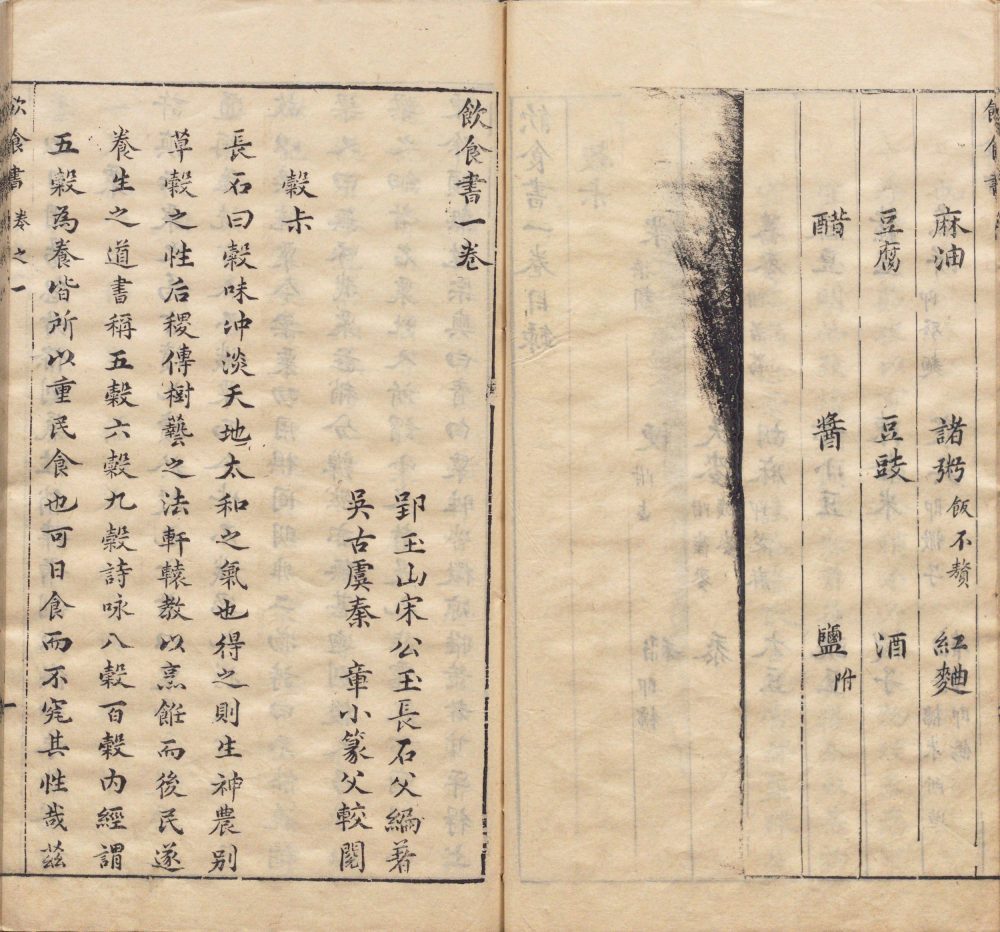 麻油　諸粥飯不贅　紅麯
豆腐　豆豉　酒
醋　醬　鹽附
飲食書一卷
郢玉山宋公玉長石父編著
吳古虞秦　章小篆父較閱
穀𠧗
長石曰穀味冲淡天地太和之氣也得之則生神農别
草穀之性后稷傳樹藝之法軒轅教以烹餁而後民遂
養生之道書稱五穀六穀九穀詩咏八穀百穀内經謂
五穀為養皆所以重民食也可日食而不究其性哉茲
飲食書　卷之一